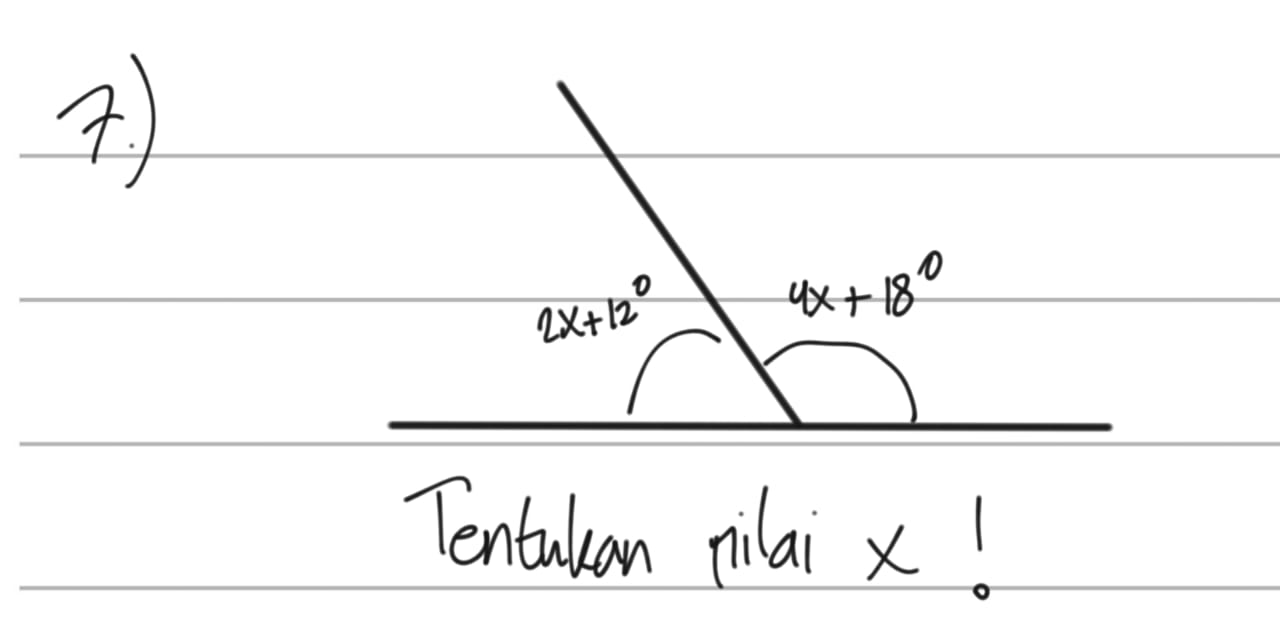 7.)
2x+12°
4x+18°
Tentukan nilai x !